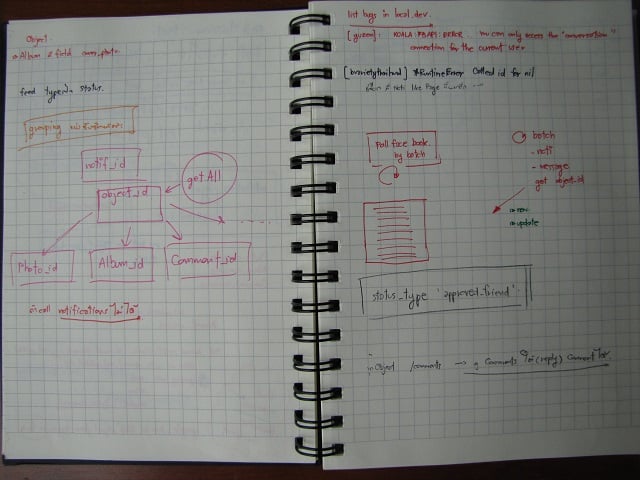 Object.
Album & field
feed type ใน status.
grouping notifications
notif_id
object_id
get All
Photo_id
Album_id
Comment_id
call notifications ไม่ได้
list bugs in local dev.
KOALA::FBAPI::ERROR You can only access the "conversation"
connection for the current user
RuntimeError Called id for nil
Pull face book.
by batch
batch
- noti
- message
get object_id
new
update
status_type 'approved_friend'.
in Object /comments → ดู Comments ได้ (reply) Comment ได้.